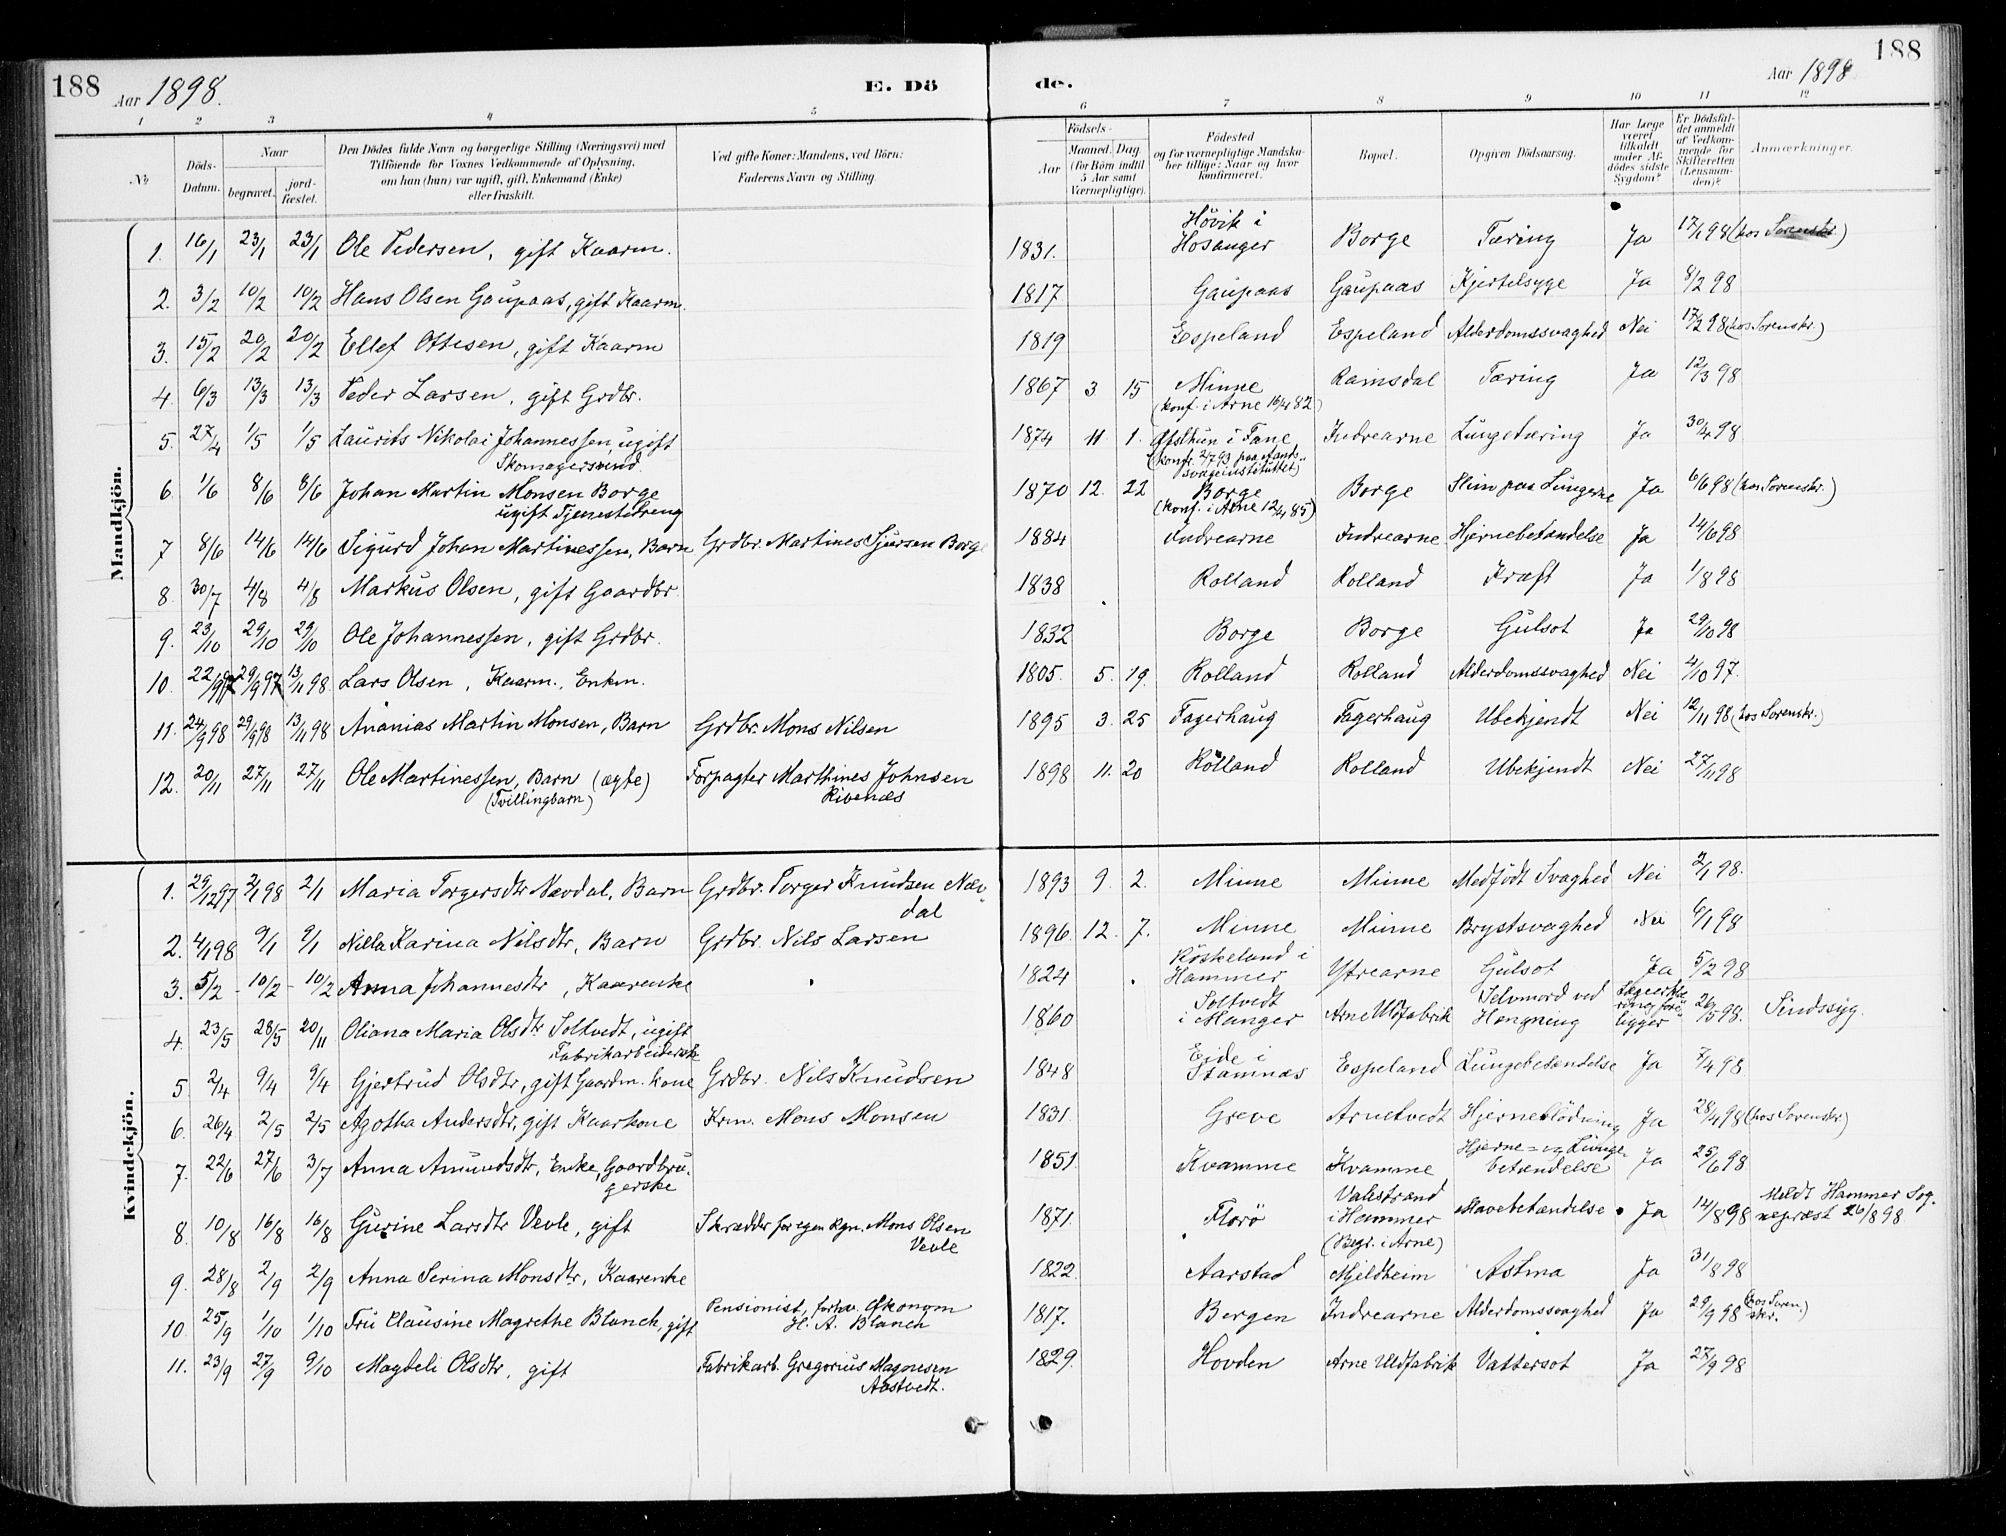 188
Aar 1898.
E. Dö
de.
Aar 1898
188
1 2 3 4 5 6 7 8 9 10 11 12
№
Döds-Datum.
Naar
begravet.
jord-fæstet.
Den Dödes fulde Navn og borgerlige Stilling (Næringsvei) med
Tilföiende for Voxnes Vedkommende af Oplysning,
om han (hun) var ugift, gift, Enkemand (Enke)
eller fraskilt.
Ved gifte Koner: Mandens, ved Börn:
Faderens Navn og Stilling.
Födsels-
Aar
Maaned. Dag
(for Börn indtil
5 Aar samt
Værnepligtige).
Födested
og for værnepligtige Mandska-
ber tillige: Naar og hvor
konfirmeret.
Bopæl.
Opgiven Dödsaarsag.
Har Læge
været
tilkaldt
under Af-
dödes sidste
Sygdom?
Er Dödsfal-
det anmeldt
af Vedkom-
mende for
Skifteretten
(Lensman-
den)?
Anmærkninger.
Mandkjön.
1. 16/1 23/1 23/1 Ole Pedersen, gift Kaarm. 1831. Hövik i Hosanger Borge Tæring Ja 17/1 98 (hos Sorenskr.)
2. 3/2 10/2 10/2 Hans Olsen Gaupaas, gift Kaarm. 1817. Gaupaas Gaupaas Kjertelsyge Ja 8/2 98
3. 15/2 20/2 20/2 Ellef Ottesen, gift Kaarm 1819 Espeland Espeland Alderdomssvaghed Nei 17/2 98 (hos Sorenskr.)
4. 6/3 13/3 13/3 Peder Larsen, gift Grdbr. 1867 3 15 Minne Ramsdal Tæring Ja 12/3 98
(konf. i Arne 16/4 82)
5. 27/4 1/5 1/5 Laurits Nikolai Johannessen, ugift 1874 11 1. i Fane Indrearne Lungetæring Ja 30/4 98
Skomagersvend (konfr. 2/7 93 paa Aands-
svageinstituttet)
6 1/6 8/6 8/6 Johan Martin Monsen Borge 1870 12. 22 Borge Borge Slim paa Lungerne Ja 6/6 98 (hos Sorenskr.)
ugift Tjenestedreng (konf. i Arne 12/4 85)
7 8/6 14/6 14/6 Sigurd Johan Martinessen, Barn Grdbr. Martines Sjursen Borge 1884 Indrearne Indrearne Hjernebetændelse Ja 14/6 98
8. 30/7 4/8 4/8 Markus Olsen, gift Gaardbr. 1838 Rolland Rolland Kræft Ja 1/8 98
9. 23/10 29/10 29/10 Ole Johannessen, gift Grdbr. 1832 Borge Borge Gulsot Ja 29/10 98
10. 22/9 97 29/9 97 13/11 98 Lars Olsen, Kaarm., Enkm. 1805. 5. 19. Rolland Rolland Alderdomssvaghed Nei 4/10 97.
11. 24/9 98 29/9 98 13/11 98 Ananias Martin Monsen, Barn Grdbr. Mons Nilsen 1895 3. 25 Fagerhaug Fagerhaug Ubekjendt Nei 12/11 98 (hos Sorenskr.)
12. 20/11 27/11 27/11 Ole Martinessen, Barn (ægte) Forpagter Marthines Johnsen 1898 11. 20 Rolland Rolland Ubekjendt Nei 27/11 98
(Tvillingbarn) Ribenæs
Kvindekjön.
1. 29/12 97 2/1 98 2/1 Maria Torgersdtr Nævdal, Barn Grdbr. Torger Knudsen Næv- 1893 9. 2. Minne Minne Medfödt Svaghed Nei 2/1 98.
dal
2. 4/1 98 9/1 9/1 Nilla Karina Nilsdtr, Barn Grdbr. Nils Larsen 1896 12. 7. Minne Minne Brystsvaghed Nei 6/1 98
3. 5/2 - 10/2 - 10/2 Anna Johannesdtr, Kaarenke 1824 Röskeland i Hammer Ytrearne Gulsot Ja 5/2 98
4. 23/5 28/5 20/11 Oliana Maria Olsdtr. Soltvedt, ugift 1860 Soltvedt i Manger Arne Uldfabrik Selvmord ved Hængning Lægeerklæ- ring fore- ligger 26/5 98. Sindssyg.
Fabrikarbeiderske
5 2/4 9/4 9/4 Gjertrud Olsdtr, gift Gaardm. kone Grdbr. Nils Knudsen 1848 Eide i Stamnæs Espeland Lungebetændelse Ja 7/4 98
6. 26/4 2/5 2/5 Agotha Andersdtr, gift Kaarkone Krm. Mons Monsen 1831. Greve Arnetvedt Hjerneblödning Ja 28/4 98 (hos Sorenskr)
7. 22/6 27/6 3/7 Anna Amundsdtr, Enke, Gaardbru- 1851. Kvamme Kvamme Hjerne- og Lunge- betændelse Ja 25/6 98
gerske
8. 10/8 16/8 16/8 Gurine Larsdtr Vevle, gift Skrædder for egen Rgn. Mons Olsen 1871. Florö Valestrand i Hammer Mavebetændelse Ja 14/8 98 Meldt Hammer Sog-
Vevle (Begr. i Arne) nepræst 26/8 98.
9. 28/8 2/9 2/9 Anna Serina Monsdtr, Kaarenke 1822. Aarstad Mjeldheim Astma Ja 31/8 98
10. 25/9 1/10 1/10 Fru Clausine Magrethe Blanch, gift Pensionist, forhv. Økonom 1817. Bergen Indrearne Alderdomssvaghed Ja 29/9 98 (hos Soren-
H. A. Blanch skr.)
11. 23/9 27/9 9/10 Magdeli Olsdtr, gift Fabrikarb. Gregorius Magnesen 1829. Hovden Arne Uldfabrik Vattersot Ja 27/9 98
Aastvedt.